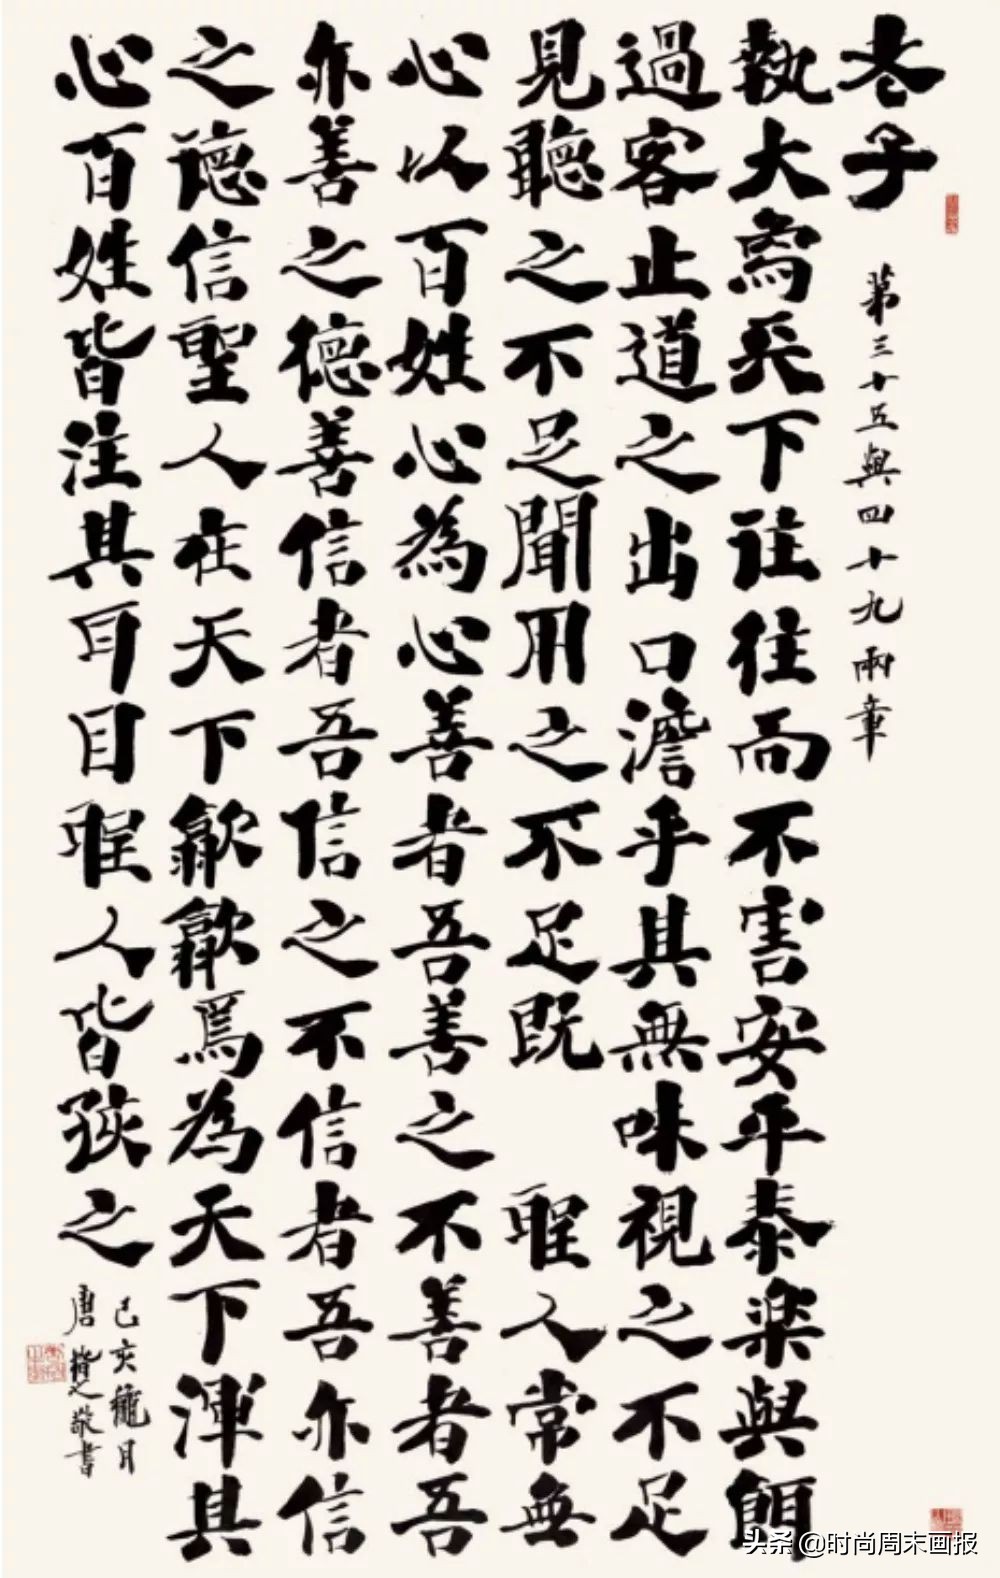 老子 第三十五與四十九兩章
執大象天下往往而不害安平泰樂與餌
過客止道之出口澹乎其無味視之不足
見聽之不足聞用之不足既 聖人常無
心以百姓心為心善者吾善之不善者吾
亦善之德善信者吾信之不信者吾亦信
之德信聖人在天下歙歙焉為天下渾其
心百姓皆注其耳目聖人皆孩之
己亥龝月
唐敬書
头条 @时尚周末画报